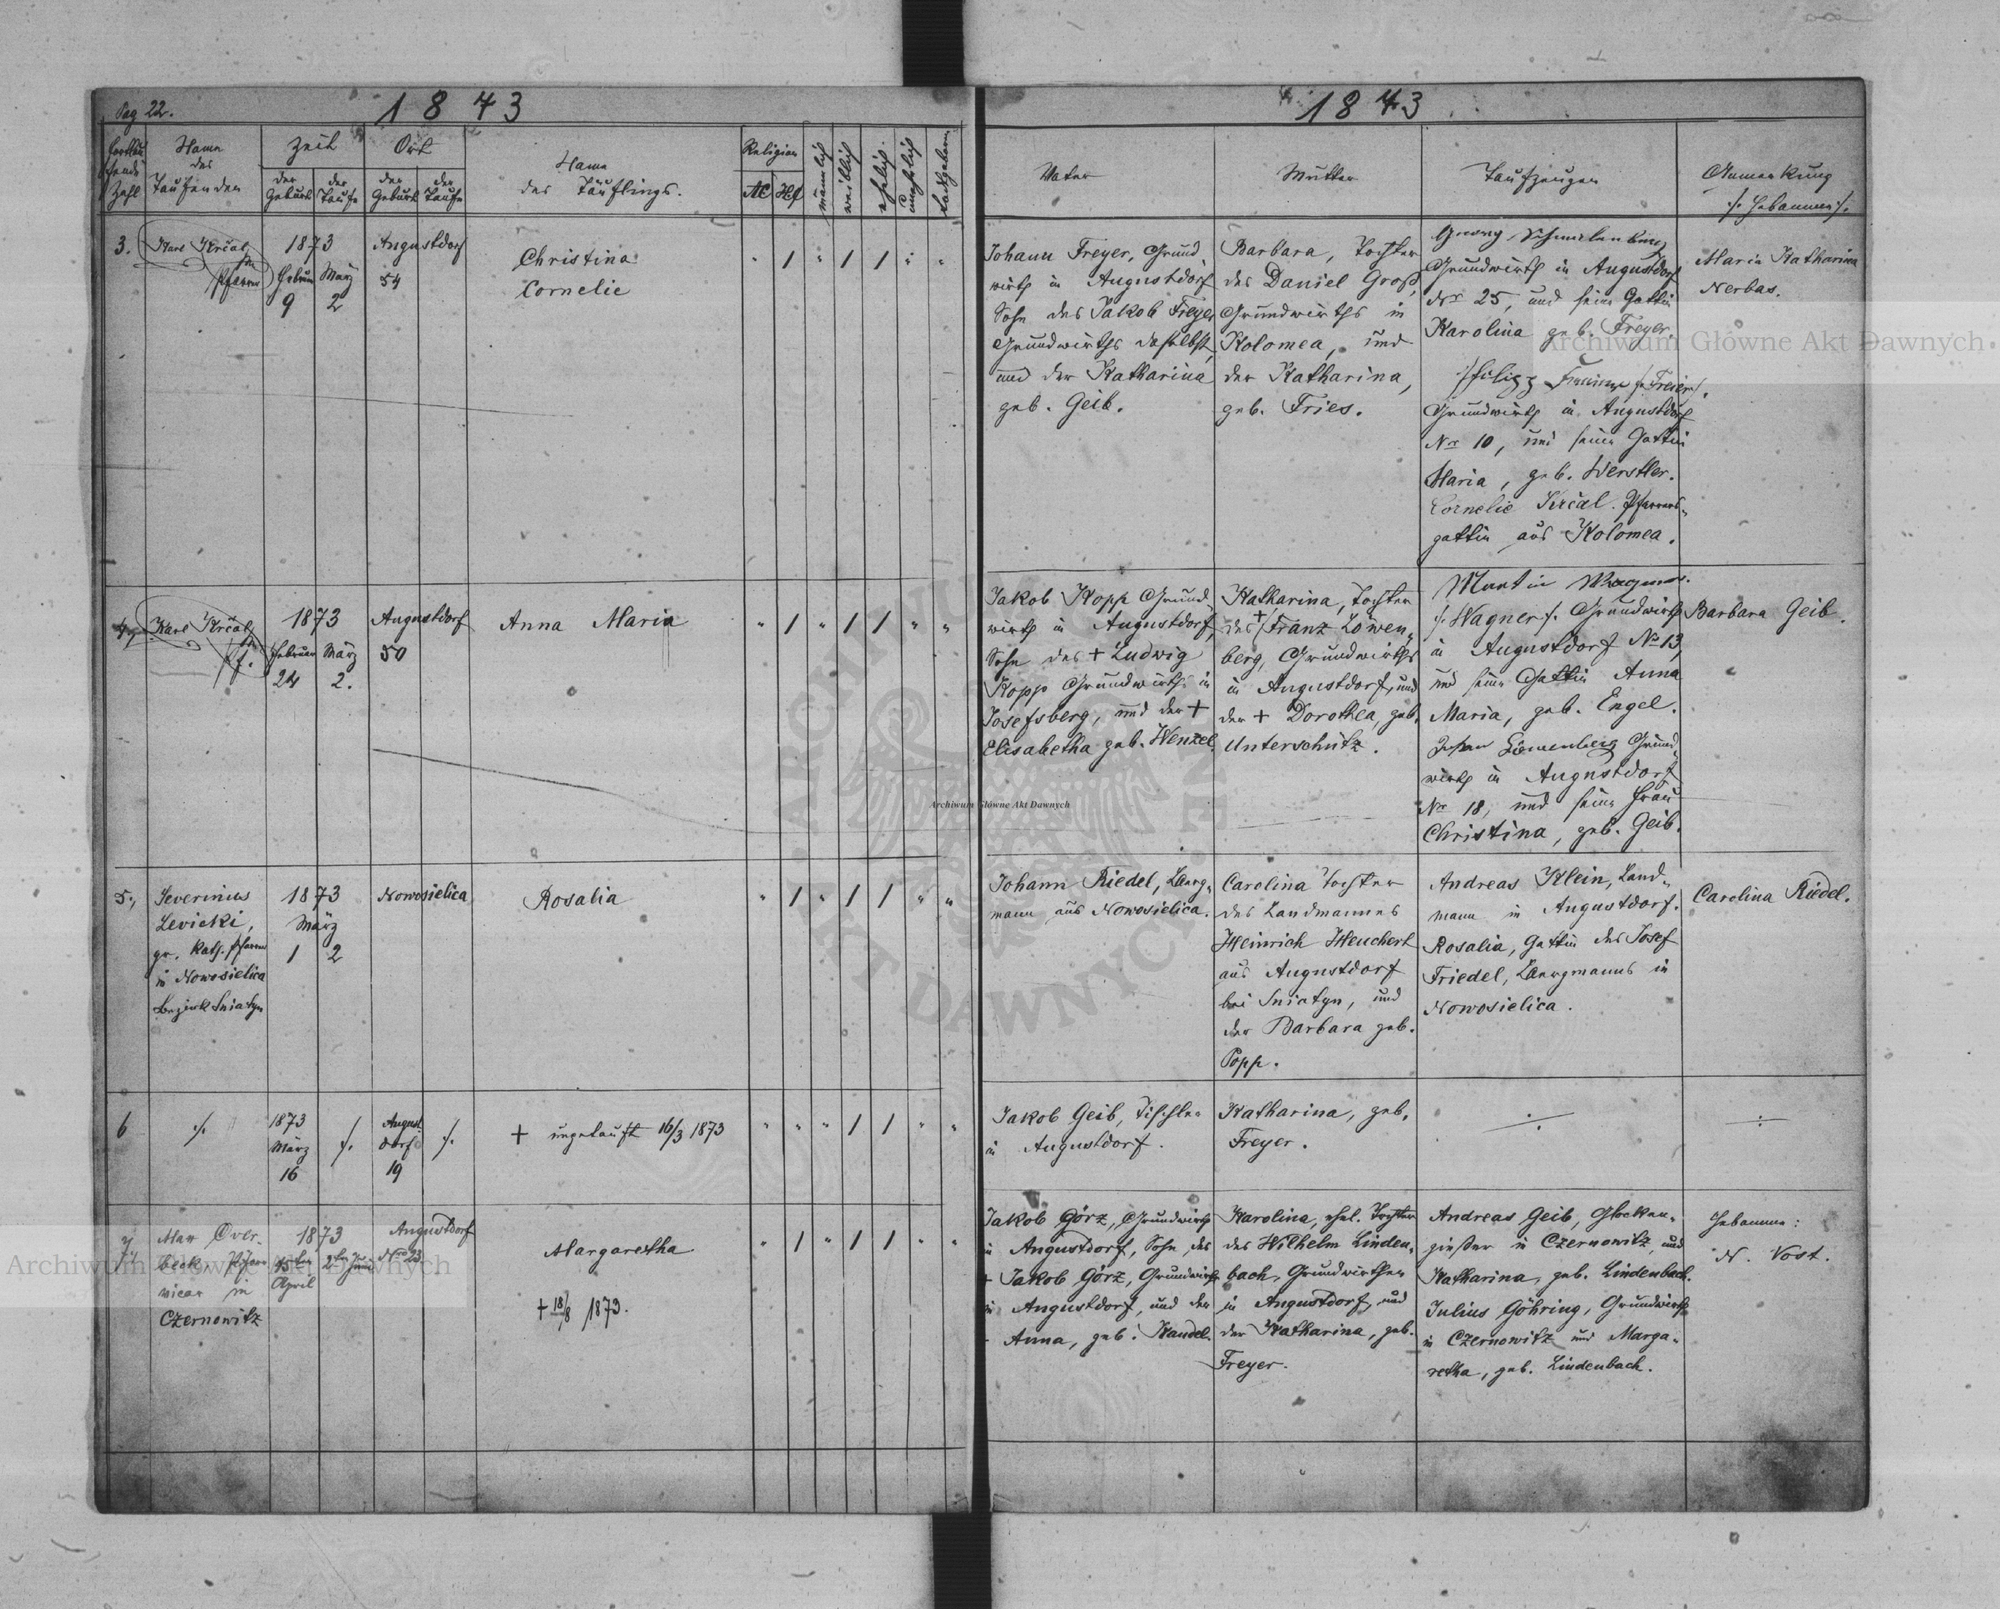 Pag 22.
1873
1873
Fortlaufende Zahl
Name des Taufenden
Zeit
der Geburt
der Taufe
Ort
der Geburt
der Taufe
Name
des Täuflings.
Religion
AC
HC
männlich
weiblich
ehelich
unehelich
todtgeboren
Vater
Mutter
Taufzeugen
Anmerkung
/: Hebammen :/
3.
Karl Krčal
Pfarrer
1873
Februar
9
März
2
Augustdorf
54
Christina
Cornelie
Johann Freyer, Grund
wirth in Augustdorf
Sohn des Jakob Freyer
Grundwirths daselbst,
und der Katharina
geb. Geib.
Barbara, Tochter
des Daniel Groß,
Grundwirths in
Kolomea, und
der Katharina,
geb. Fries.
Georg
Grundwirth in Augustdorf
Nr 25, und seine Gattin
Karolina geb. Freyer.
Philipp /: Freier :/.
Grundwirth in Augustdorf
Nr 10, und seine Gattin
Maria, geb. Werstler.
Cornelie Krčal. Pfarrers-
gattin aus Kolomea.
Maria Katharina
Nerbas.
4.
Karl Krčal
Pf.
1873
Februar
24
März
2.
Augustdorf
50
Anna Maria
Jakob Kopp Grund-
wirth in Augustdorf,
Sohn des + Ludwig
Kopp Grundwirths in
Josefsberg, und der +
Elisabetha geb. Wenzel.
Katharina, Tochter
des + Franz Löwen-
berg, Grundwirths
in Augustdorf, und
der + Dorothea, geb.
Unterschütz.
Martin Wagner
/: Wagner :/. Grundwirth
in Augustdorf No 13,
und seine Gattin Anna
Maria, geb. Engel.
Johan Löwenberg Grund-
wirth in Augustdorf
Nr 18, und seine Frau
Christina, geb. Geib.
Barbara Geib.
5.
Severinus
Levicki,
gr. kath. Pfarrer
in Nowosielica
Bezirk Sniatyn
1873
März
1
2
Nowosielica
Rosalia
Johann Riedel, Berg-
mann aus Nowosielica.
Carolina Tochter
des Landmannes
Heinrich Heuchert
aus Augustdorf
bei Sniatyn, und
der Barbara geb.
Popp.
Andreas Klein, Land-
mann in Augustdorf.
Rosalia, Gattin des Josef
Friedel, Bergmanns in
Nowosielica.
Carolina Riedel.
6
1873
März
16
August
dorf
19
+ ungetauft 16/3 1873
Jakob Geib, Tischler
in Augustdorf.
Katharina, geb.
Freyer.
7.
Max Over-
beck, Pfarr
vicar in
Czernowitz
1873
15ten
April
2ten
Juni
Augustdorf
Nro 23
Margaretha
+ 18/8 1873.
Jakob Görz, Grundwirth
in Augustdorf, Sohn des
+ Jakob Görz, Grundwirth
in Augustdorf, und der
Anna, geb. Kandel.
Karolina, ehel. Tochter
des Wilhelm Linden-
bach, Grundwirthen
in Augustdorf, und
der Katharina, geb.
Freyer.
Andreas Geib, Glocken-
gießer in Czernowitz, und
Katharina, geb. Lindenbach.
Julius Göhring, Grundwirth
in Czernowitz und Marga-
retha, geb. Lindenbach.
Hebamme:
N. Vost.
Archiwum Główne Akt Dawnych
Archiwum Główne Akt Dawnych
Archiwum Główne Akt Dawnych